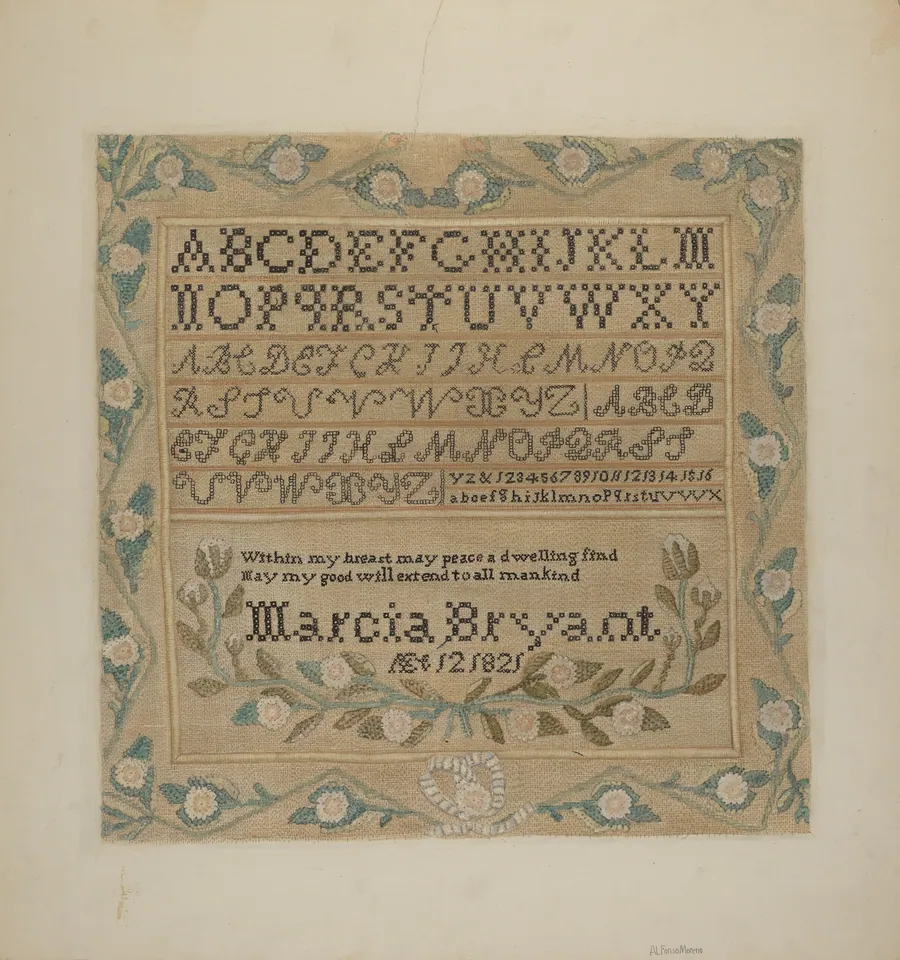 ABCDEFGHIJKLM
NOPQRSTUVWXY
ABCDEFGHIJKLMNOPQ
RSTUVWXYZ ABCD
EFGHIJKLMNOPQRST
UVWXYZ
yz & 1 2 3 4 5 6 7 8 9 10 11 12 13 14 15 16
abcefghijklmnopqrstuvwx
Within my breast may peace a dwelling find
May my good will extend to all mankind
Marcia Bryant
Æt 12 1821
ALFonso Moreno